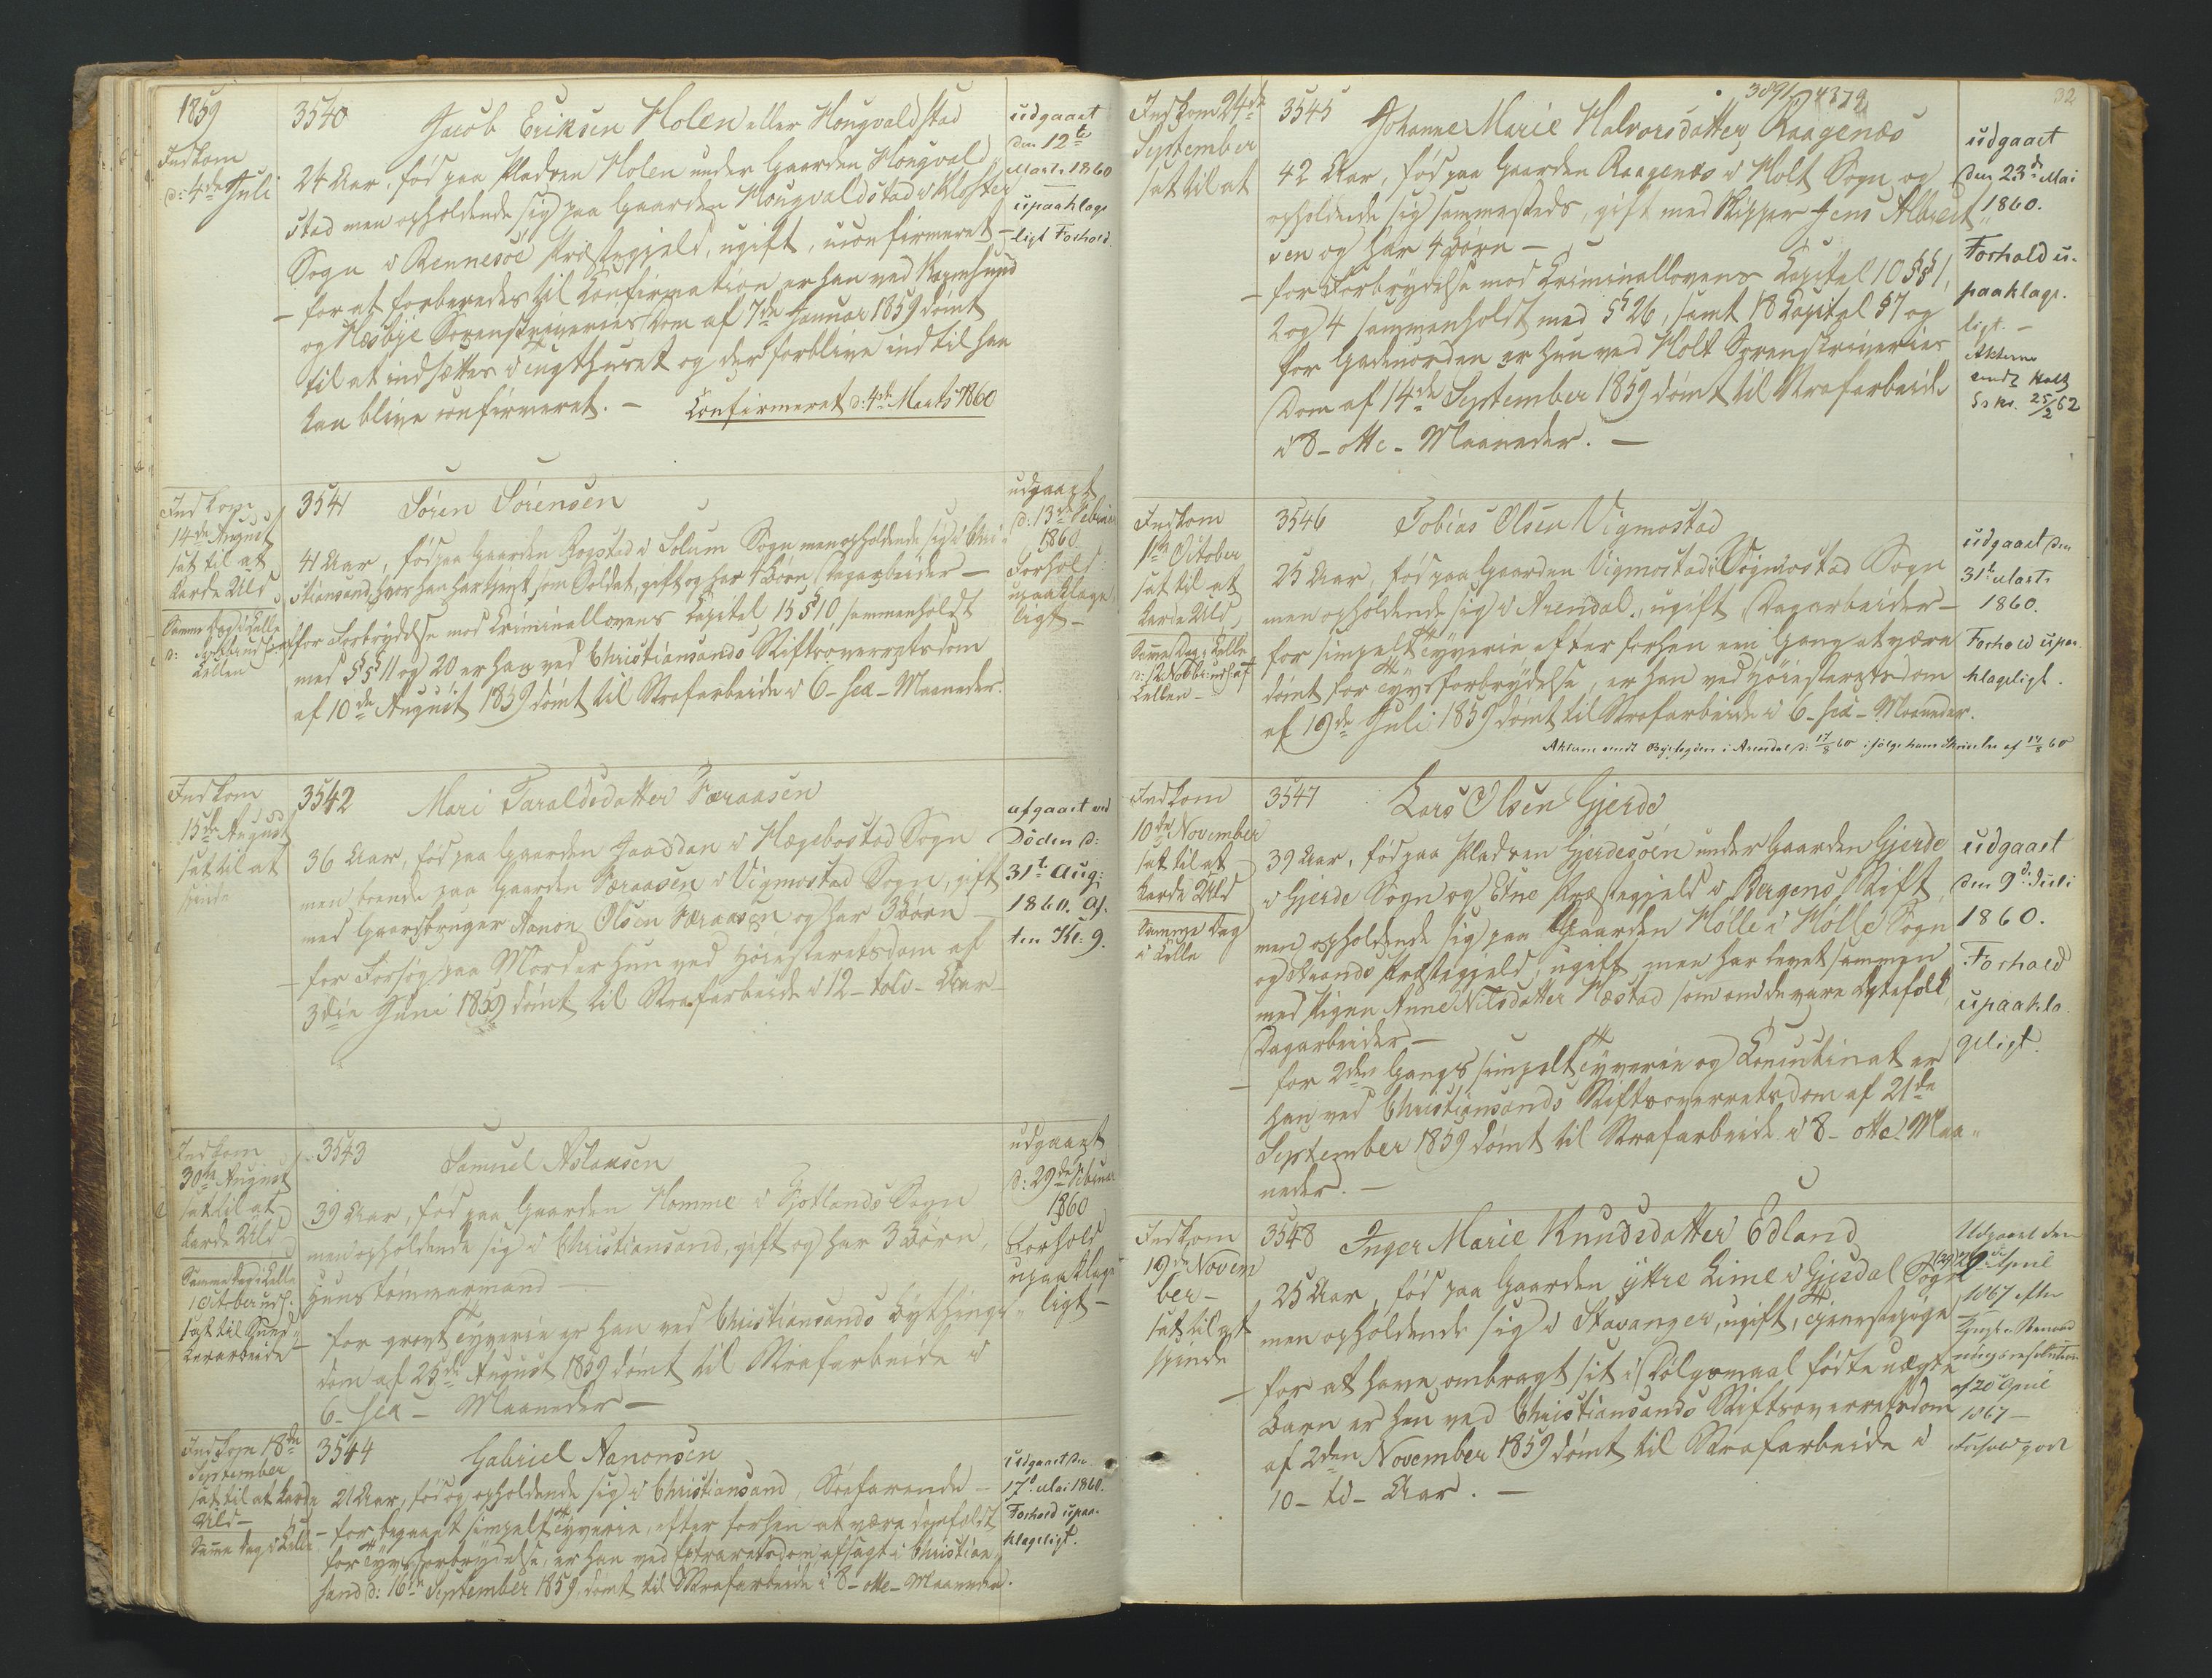 1859
Indkom
d: 4de Juli
3540 Jacob Eriksen Holen eller Hougvaldstad
24 Aar, født paa Pladsen Holen under Gaarden Hougvald
stad men opholdende sig paa Gaarden Hougvaldstad i Kloster
Sogn i Rennesöe Præstegjeld, ugift, uconfirmeret –
– for at forberedes til Confirmation er han ved
og Hesbye Sorenskriveries Dom af 7de Januar 1859 dömt
til at indsættes i Tugthuset og der forblive indtil han
kan blive confirmeret. – Confirmeret d: 4de Marts 1860
udgaaet
den 12te
Marts 1860
upaaklage
ligt Forhold.
Indkom
14de August
sat til at
karde Uld
Samme Dag i Celle
d:
Cellen
3541 Sören Sörensen
41 Aar, født paa Gaarden Rogstad i Solum Sogn men opholdende sig i Chri
stiansand, hvor han har tjent som Soldat, gift og har 1 Börn, Dagarbeider –
for Forbrydelse mod Criminallovens Capitel 15 § 10, sammenholdt
med §§ 11 og 20 er han ved Christiansands Stiftsoverretsdom
af 10de August 1859 dömt til Strafarbeide i 6 – sex – Maaneder.
udgaaet
d: 13de Februar
1860.
Forhold
upaaklage
ligt –
Indkom
15de August
sat til at
spinde
3542 Mari Taraldsdatter Færaasen
36 Aar, født paa Gaarden Jaaddan i Hægebostad Sogn
men boende paa Gaarden Færaasen i Vigmostad Sogn, gift
med Gaardbruger Aanon Olsen Færaasen og har 3 Börn –
– for Forsög paa Mord er hun ved Höiesteretsdom af
3die Juni 1859 dömt til Strafarbeide i 12 – tolv – Aar –
afgaaet ved
Döden d:
31te Aug:
1860. Af.
ten Kl: 9.
Indkom
30te August
sat til at
karde Uld
Samme Dag i Celle
1 October
sat til Sned
kerarbeide
3543 Samuel Aslaksen
39 Aar, født paa Gaarden Homme i Fjotlands Sogn
men opholdende sig i Christiansand, gift og har 3 Börn,
Huustömmermand –
– for grovt Tyverie er han ved Christiansands Bythings-
dom af 25de August 1859 dömt til Strafarbeide i
6 – sex – Maaneder –
udgaaet
d: 29de Februar
1860
Forhold
upaaklage
ligt –
Indkom 18de
September
sat til at karde
Uld –
Samme Dag i Celle
3544 Gabriel Aanonsen
21 Aar, född og opholdende sig i Christiansand, Söefarende –
– for begaaet simpelt Tyverie, efter forhen at være domfældt
for Tyvsforbrydelse, er han ved Extraretsdom afsagt i Christian
sand d: 16de September 1859, dömt til Strafarbeide i 8 – otte – Maaneder.
udgaaet den
17de Mai 1860.
Forhold upaa-
klageligt.
32
3891 4372
Indkom 24de
September
sat til at
3545 Johanne Marie Halvorsdatter Raagenæs
42 Aar, född paa Gaarden Raagenæs i Holt Sogn og
opholdende sig sammesteds, gift med Skipper Jens Albret
sen og har 4 Börn –
– for Forbrydelse mod Criminallovens Capitel 10 §§ 1,
2 og 4 sammenholdt med § 26, samt 18 Capitel § 7 og
for Gadeuorden er hun ved Holt Sorenskriveries
Dom af 14de September 1859 dömt til Strafarbeide
i 8 – otte – Maaneder. –
udgaaet
den 23de Mai
1860.
Forhold u-
paaklage-
ligt. –
Akterne
sendt Holt
Sskr. 25/2 62
Indkom
1ste October
sat til at
karde Uld
Samme Dag i Celle
Cellen –
3546 Tobias Olsen Vigmostad
25 Aar, född paa Gaarden Vigmostad i Vigmostad Sogn
men opholdende sig i Arendal, ugift, Dagarbeider –
for simpelt Tyverie efter forhen een Gang at være
dömt for Tyvsforbrydelse, er han ved Höiesteretsdom
af 19de Juli 1859 dömt til Strafarbeide i 6 – sex – Maaneder.
Akterne sendt Byfogden i Arendal d: 17/8 60 ifölge hans Skrivelse af 14/8 60
udgaaet den
31te Marts
1860.
Forhold upaa-
klageligt.
Indkom
10de November
sat til at
karde Uld
Samme Dag
i Celle
3547 Lars Olsen Gjerde
39 Aar, född paa Pladsen Gjerdesöen under Gaarden Gjerde
i Gjerde Sogn og Etne Præstegjeld i Bergens Stift
men opholdende sig paa Gaarden Hölle i Hölle Sogn
og Strands Præstegjeld, ugift men har levet sammen
med Pigen Anne Nilsdatter Næstad som om de vare Ægtefolk,
Dagarbeider –
– for 2den Gangs simpelt Tyverie og Concubinat er
han ved Christiansands Stiftsoverretsdom af 21de
September 1859 dömt til Strafarbeide i 8 – otte – Maa-
neder. –
udgaaet
den 9de Juli
1860.
Forhold
upaakla-
geligt.
Indkom
19de Novem
ber –
sat til at
spinde
3548 Inger Marie Knudsdatter Edland
25 Aar, född paa Gaarden yttre Lime i Gjesdal Sogn
men opholdende sig i Stavanger, ugift, Tjenestepige
– for at have ombragt sit i Dölgsmaal födte uægte
Barn er hun ved Christiansands Stiftsoverretsdom
af 2den November 1859 dömt til Strafarbeide i
10 – ti – Aar. –
Udgaaet den
April
1867 efter
Kongl. Benaad
ningsresolution
af 20 April
1867 –
Forhold godt